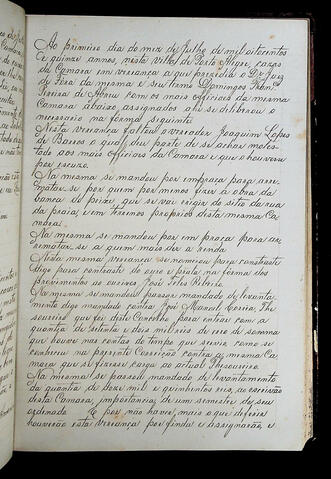 Ao primeiro dia do mez de Julho de mil oitocentos
e quinze annos, nesta Villa de Porto Alegre, cazas
da Camara em vereança a que prezidio o Dr. Juiz
de Fora da mesma e seu termo Domingos Fran.co
Pereira de Abreu com os mais officiaes da mesma
Camara abaixo assignados ahi se deliberou o
necessario na forma seguinte
Nesta vereança faltou o vereador Joaquim Lopes
de Barros o qual deu parte de se achar moles-
tado aos mais officiaes da Camara e que o houvesse
por escuzo
Na mesma se mandou por em praça para arre-
matar-se por quem por menos fizer a obra da
banca do peixe que se vai erigir do sitio da rua
da praia, em terrenos proprios desta mesma Ca-
mara.
Na mesma se mandou por em praça para ar-
rematar-se a quem mais der a renda
Nesta mesma vereança se nomeiou para constraste
digo para contraste do ouro e prata na forma dos
provimentos ao ourives José Telis Ribeiro
Na mesma se mandou passar mandado de levanta
mento digo mandado contra José Manoel Corrêa, The-
soureiro que foi deste Concelho para entrar com a
quantia de setenta e dois mil réis de erro de somma
que houve nas contas do tempo que servio como se
conheceo na presente Correição contra a mesma Ca
mara que se fizesse carga ao actual Thesoureiro.
Na mesma se passou mandado de levantamento
da quantia de doze mil e quinhentos réis, ao escrivão
desta Camara, importancia de um semestre do seu
ordenado E por não haver mais que deferir
houverão esta vereança por finda e assignarão e